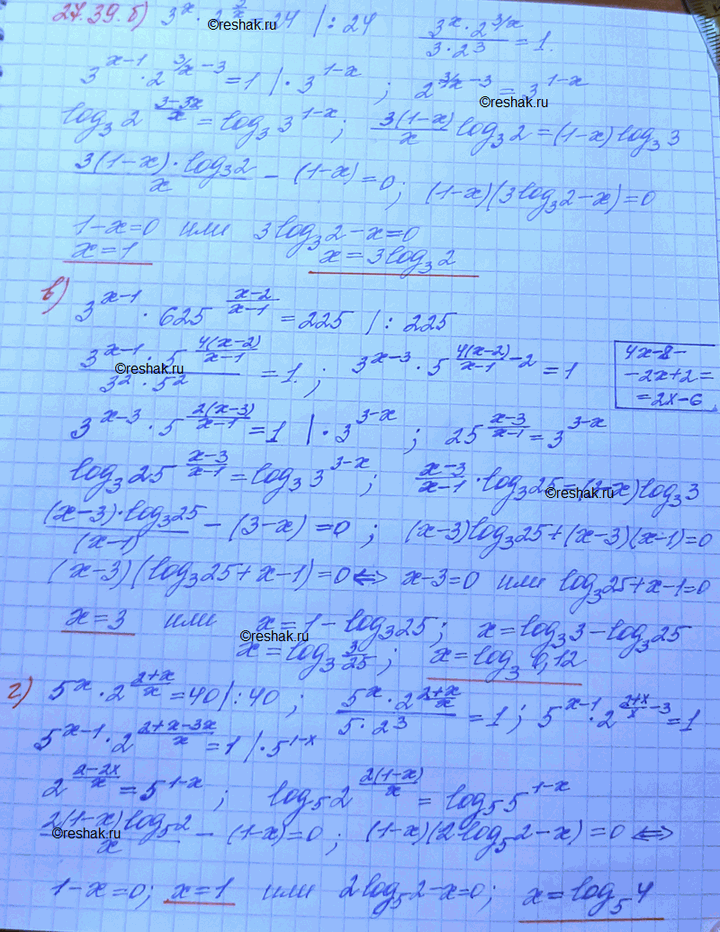 27.39. б) 3^x · 2^{3/x} = 24 |: 24    \frac{3^x · 2^{3/x}}{3 · 2^3} = 1.
3^{x-1} · 2^{3/x-3} = 1 | · 3^{1-x} ; 2^{3/x-3} = 3^{1-x}
log_3 2^{\frac{3-3x}{x}} = log_3 3^{1-x} ; \frac{3(1-x)}{x} log_3 2 = (1-x) log_3 3
\frac{3(1-x) · log_3 2}{x} - (1-x) = 0 ; (1-x)(3log_3 2 - x) = 0
1-x=0 или 3log_3 2 - x = 0
x=1    x = 3log_3 2
в) 3^{x-1} · 625^{\frac{x-2}{x-1}} = 225 |: 225
\frac{3^{x-1} · 5^{\frac{4(x-2)}{x-1}}}{3^2 · 5^2} = 1 ; 3^{x-3} · 5^{\frac{4(x-2)}{x-1}-2} = 1
4x-8-
-2x+2=
=2x-6
3^{x-3} · 5^{\frac{2(x-3)}{x-1}} = 1 | · 3^{3-x} ; 25^{\frac{x-3}{x-1}} = 3^{3-x}
log_3 25^{\frac{x-3}{x-1}} = log_3 3^{3-x} ; \frac{x-3}{x-1} · log_3 25 = -x) log_3 3
\frac{(x-3) · log_3 25}{(x-1)} - (3-x) = 0 ; (x-3) log_3 25 + (x-3)(x-1) = 0
(x-3)(log_3 25 + x-1) = 0 <=> x-3=0 или log_3 25 + x-1=0
x=3 или x = 1 - log_3 25 ; x = log_3 3 - log_3 25
x = log_3 \frac{3}{25} ; x = log_3 0,12
г) 5^x · 2^{\frac{2+x}{x}} = 40 |: 40 ; \frac{5^x · 2^{\frac{2+x}{x}}}{5 · 2^3} = 1 ; 5^{x-1} · 2^{\frac{2+x}{x}-3} = 1
5^{x-1} · 2^{\frac{2+x-3x}{x}} = 1 | · 5^{1-x}
2^{\frac{2-2x}{x}} = 5^{1-x} ; log_5 2^{\frac{2(1-x)}{x}} = log_5 5^{1-x}
\frac{2(1-x) log_5 2}{x} - (1-x) = 0 ; (1-x)(2log_5 2 - x) = 0 <=>
1-x=0 ; x=1 или 2log_5 2 - x = 0 ; x = log_5 4
©reshak.ru
©reshak.ru
©reshak.ru
©reshak.ru
©reshak.ru
©reshak.ru
©reshak.ru